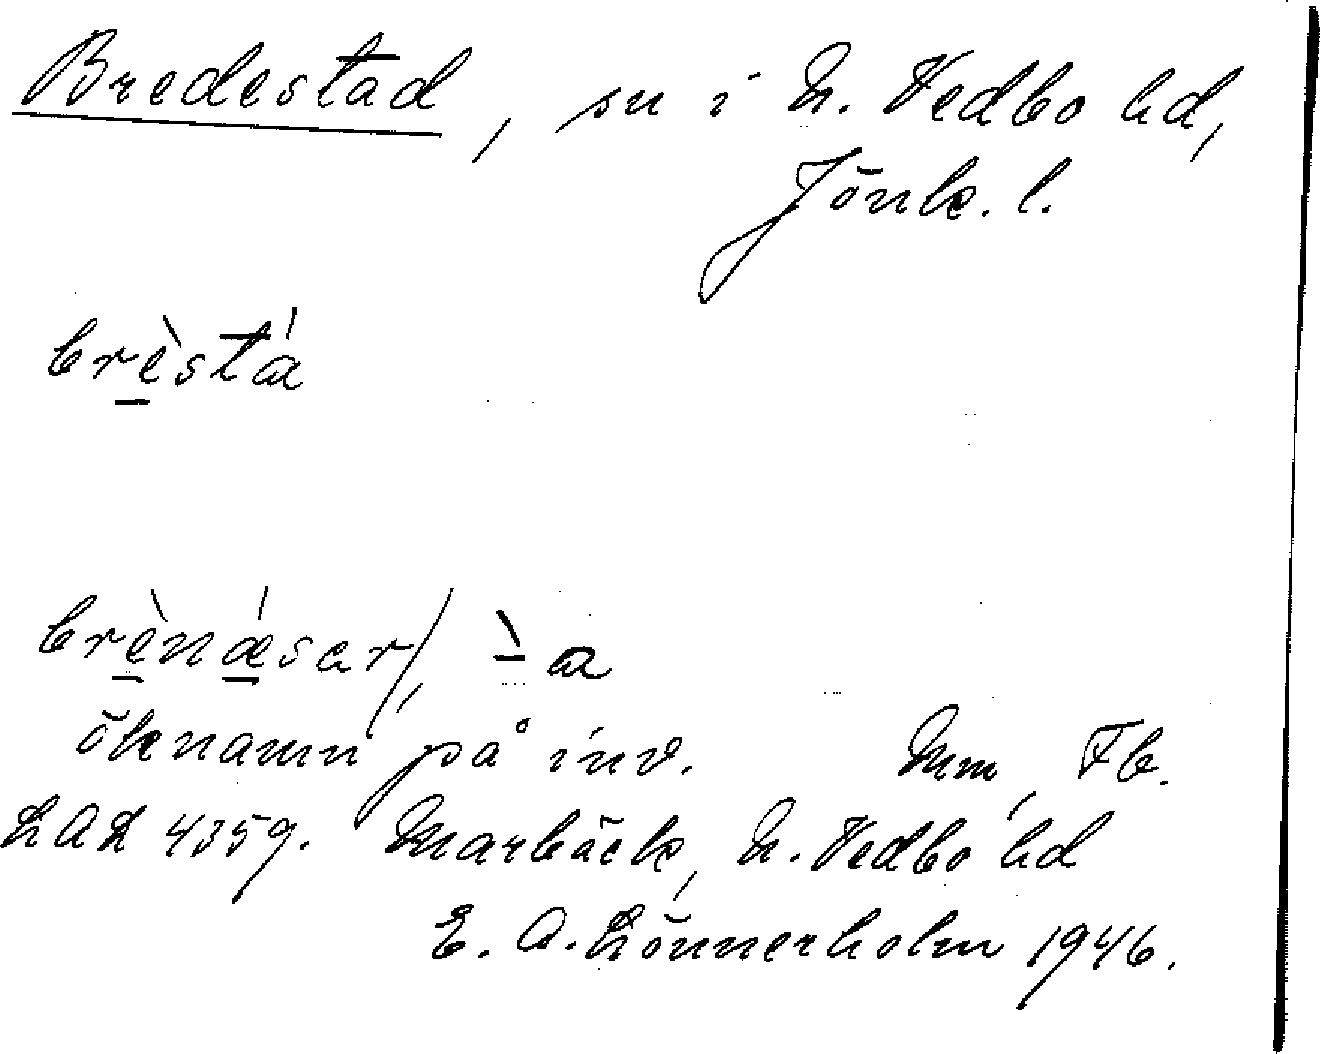 Bredestad, sn i N. Vedbo hd,
Jönk. l.
brèstá
brènǽsar, -̀a
öknamn på inv. Mm, Fb.
LAL 4359. Marbäck, N. Vedbo hd
E. A. Lönnerholm 1946.